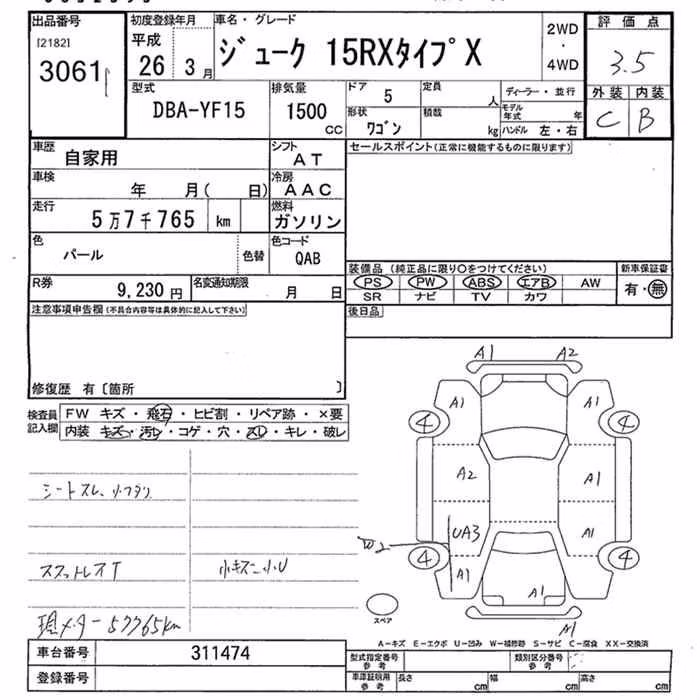 出品番号
[2182]
3061
初度登録年月
平成
26 3月
車名・グレード
ジューク 15RXタイプX
2WD
・
4WD
評価点
3.5
外装 内装
C B
型式
DBA-YF15
排気量
1500
CC
ドア
5
定員
人
形状
ワゴン
積載
kg
ディーラー・並行
モデル年式
年
ハンドル 左・右
車歴
自家用
シフト
AT
車検
年 月( 日)
冷房
AAC
走行
5万7千765 km
燃料
ガソリン
色
パール
色替
色コード
QAB
R券
9,230円
名変通知期限
月 日
セールスポイント(正常に機能するものに限ります)
装備品 (純正品に限り○をつけてください)
PS PW ABS エアB AW
SR ナビ TV カワ
新車保証書
有・無
後日品
注意事項申告欄(不具合内容等は具体的に記入して下さい)
修復歴 有〔箇所 〕
検査員
記入欄
FW キズ・飛石・ヒビ割・リペア跡・×要
内装 キズ・汚レ・コゲ・穴・スレ・キレ・破レ
シートスレ、
スタットレスT
小キズ、小U
現メーター57765km
A1 A2
A1 A1
4 4
A2 A1
UA3 A1
W2
4 4
A1 A1
A1
スペア
A−キズ E−エクボ U−凹み W−補修跡 S−サビ C−腐食 XX−交換済
車台番号
311474
登録番号
型式指定番号
参考
類別区分番号
参考
車庫証明用
参考
長さ
cm
幅
cm
高さ
cm